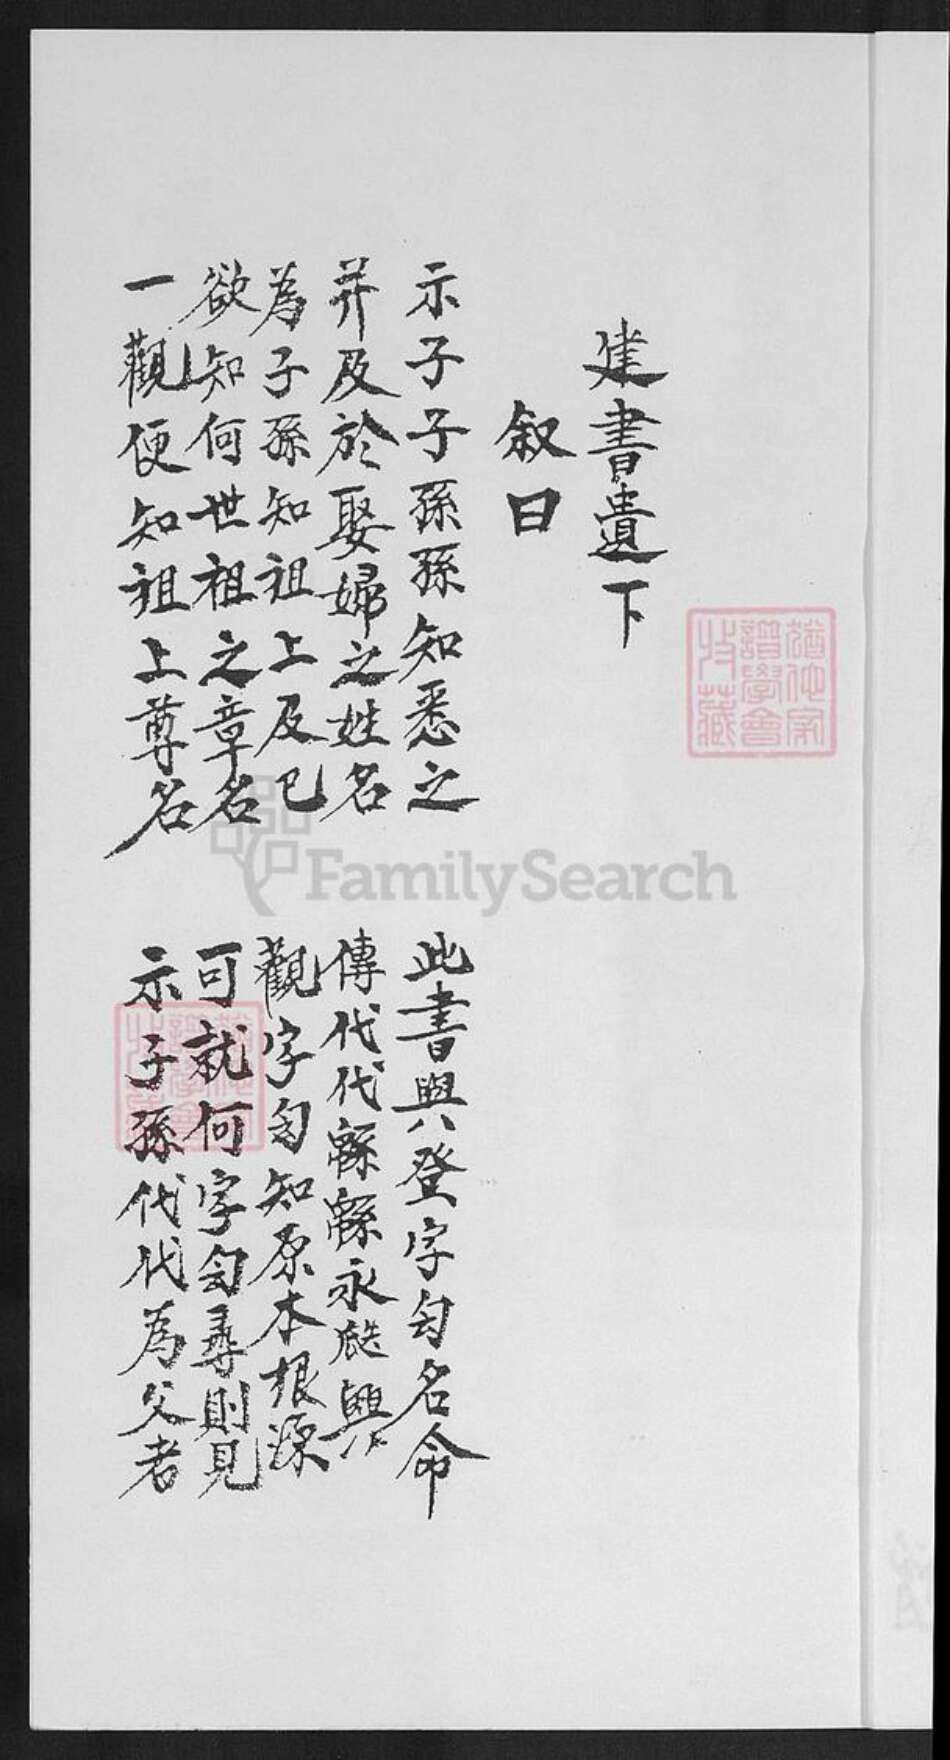 建書遺下
叙曰
示子子孫孫知悉之
此書與登字勻名命
并及於娶婦之姓名
傳代代緜緜永與
為子孫知祖上及已
觀字勻知原本根源
欲知何世祖之章名
可就何字勻尋則見
一觀便知祖上尊名
示子孫代代為父者
譜學會
收藏
FamilySearch